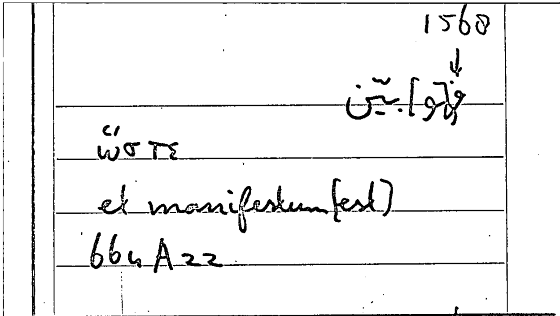 1568
بيّن
ὥστε
et manifestum (est)
664 A22